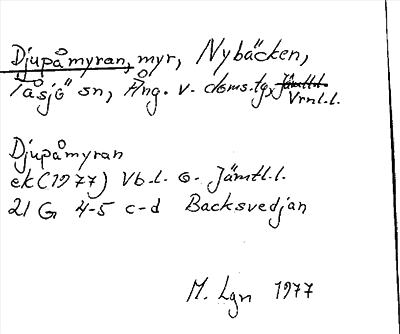 Djupåmyran, myr, Nybäcken,
Tåsjö sn, Ång. v. doms.tg, Jämtl.l.
Vrnl.l.
Djupåmyran
ek (1977) Vb.l. o. Jämtl.l.
21 G 4-5 c-d Backsvedjan
M. Lgn 1977